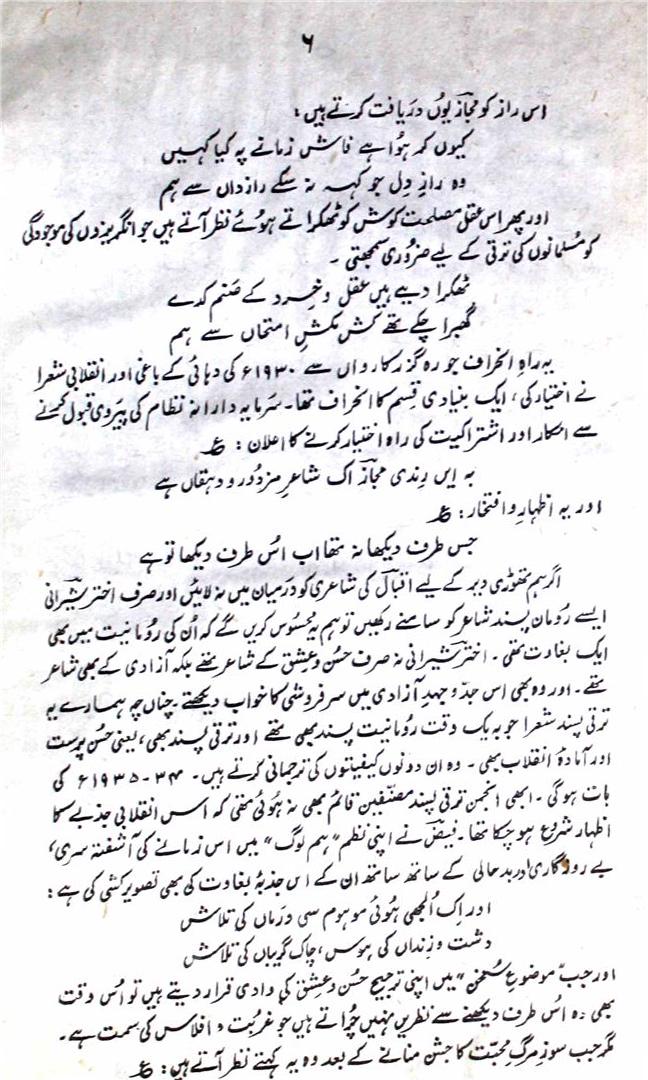 ۶
اس راز کو مجازؔ یوں دریافت کرتے ہیں:
کیوں کر ہوا ہے فاش زمانے پہ کیا کہیں
وہ رازِ دل جو کہہ نہ سکے رازداں سے ہم
اور پھر اس عقل مصلحت کوش کو ٹھکراتے ہوئے نظر آتے ہیں جو انگریزوں کی موجودگی
کو مُسلمانوں کی ترقی کے لیے ضروری سمجھتی ۔
ٹھکرا دیے ہیں عقل و خِرد کے صَنم کدے
گھبرا چکے تھے کش مکشِ امتحاں سے ہم
یہ راہِ انحراف جو رہ گزر کارواں سے ۱۹۳۰ء کی دہائی کے باغی اور انقلابی شعرا
نے اختیار کی، ایک بنیادی قِسم کا انحراف تھا۔ سَرمایہ دارانہ نظام کی پَیروی قبول کرنے
سے انکار اور اشتراکیت کی راہ اختیار کرنے کا اعلان: ؏
بہ ایں رِندی مجازؔ اک شاعرِ مزدُور و دہقاں ہے
اور یہ اظہارِ و افتخار: ؏
جس طرف دیکھا نہ تھا اب اُس طرف دیکھا تو ہے
اگر ہم تھوڑی دیر کے لیے اقبالؔ کی شاعری کو دَرمیان میں نہ لائیں اور صرف اختر شیرانیؔ
ایسے رُومان پسند شاعر کو سامنے رکھیں تو ہم یہ محسُوس کریں گے کہ اُن کی رُومانیت میں بھی
ایک بغاوت تھی ۔ اختر شیرانیؔ نہ صرف حُسن و عِشق کے شاعر تھے بلکہ آزادی کے بھی شاعر
تھے ۔ اور وہ بھی اس جدّ و جہدِ آزادی میں سرفروشی کا خواب دیکھتے۔ چناں چہ ہمارے یہ
ترقی پسند شعرا جو بہ یک وقت رُومانیت پسند بھی تھے اور ترقی پسند بھی، یعنی حُسن پَرست
اور آمادۂ انقلاب بھی ۔ وہ ان دونوں کیفیتوں کی ترجمانی کرتے ہیں ۔ ۳۴-۱۹۳۵ء کی
بات ہوگی ۔ ابھی انجمن ترقی پسند مصنّفین قائم بھی نہ ہُوئی تھی کہ اس انقلابی جذبے کا
اظہار شروع ہو چکا تھا۔ فیضؔ نے اپنی نظم "ہم لوگ" میں اس زمانے کی آشفتہ سری،
بے روزگاری اور بدحالی کے ساتھ ساتھ ان کے اس جذبۂ بغاوت کی بھی تصویر کشی کی ہے:
اور اِک اُلجھی ہُوئی موہوم سی دَرماں کی تلاش
دشت و زِنداں کی ہوس، چاک گریباں کی تلاش
اور جب "موضوعِ سُخن" میں اپنی ترجیح حُسن و عِشق کی وادی قرار دیتے ہیں تو اُس وقت
بھی وہ اُس طرف دیکھنے سے نظریں نہیں چُراتے ہیں جو غربُت و افلاس کی سِمت ہے ۔
مگر جب سوزِ مرگِ محبّت کا جشن منانے کے بعد وہ یہ کہتے نظر آتے ہیں: ؏